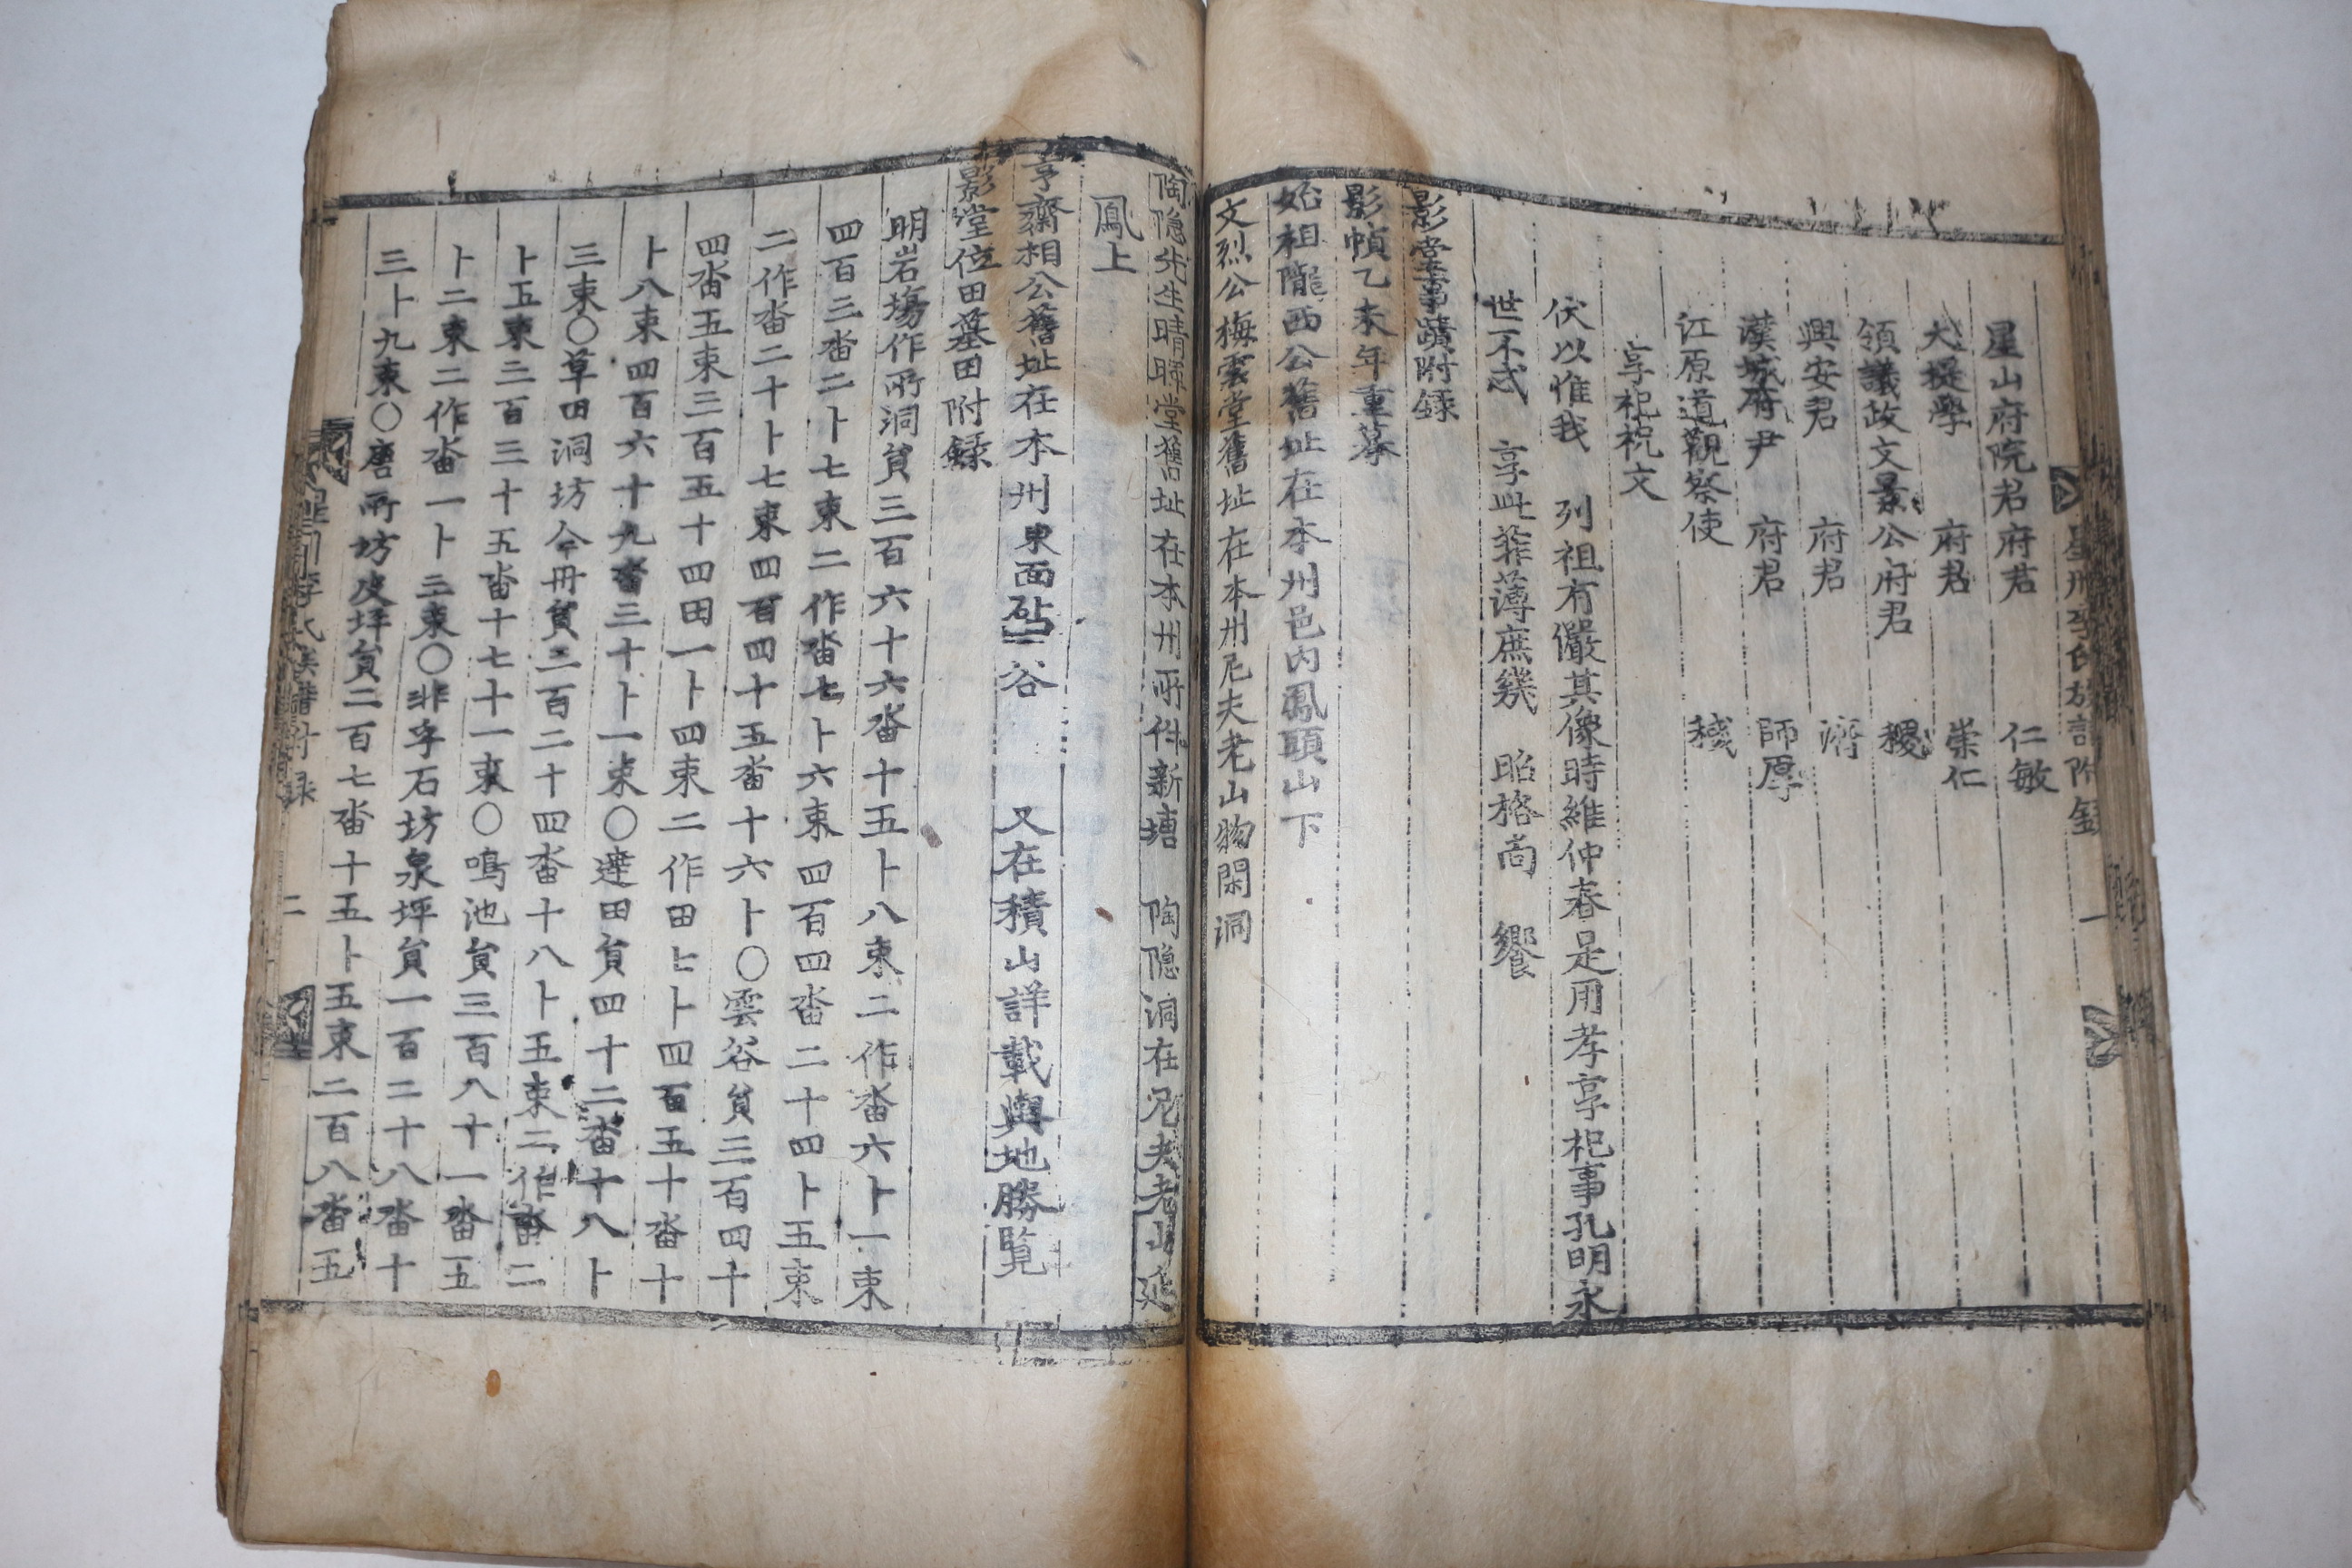 星州李氏族譜附錄 一
星山府院君府君 仁敏
大提學 府君 崇仁
領議政文景公府君 稷
興安君 府君 濟
漢城府尹 府君 師厚
江原道觀察使 穢
享祀祝文
伏以惟我 列祖有儼其像時維仲春是用孝享祀事孔明永
世不忒 享此菲薄庶幾 昭格尚 饗
影堂事蹟附錄
影幀乙未年重摹
始祖隴西公舊址在本州邑內鳳頭山下
文烈公梅雲堂舊址在本州尼夫老山物閑洞
陶隱先生晴暉堂舊址在本州所件新塘 陶隱洞在尼夫老山延
鳳上
亨齋相公舊址在本州東面砧谷 又在積山詳載輿地勝覽
影堂位田墓田附錄
明岩塲作所洞負三百六十六畓十五卜八束二作畓六卜一束
四百三畓二卜七束二作畓七卜六束四百四畓二十四卜五束
二作畓二十卜七束四百四十五畓十六卜〇雲谷負三百四十
四畓五束三百五十四田一卜四束二作田七卜四百五十畓十
卜八束四百六十九畓三十卜一束〇達田負四十二畓十八卜
三束〇草田洞坊今冊負二百二十四畓十八卜五束二作畓二
卜五束三百三十五畓十七十一束〇鳴池負三百八十一畓五
卜二束二作畓一卜三束〇非字石坊泉坪負一百二十八畓十
三卜九束〇唐所坊皮坪負二百七畓十五卜五束二百八畓五
李氏族譜付录 二